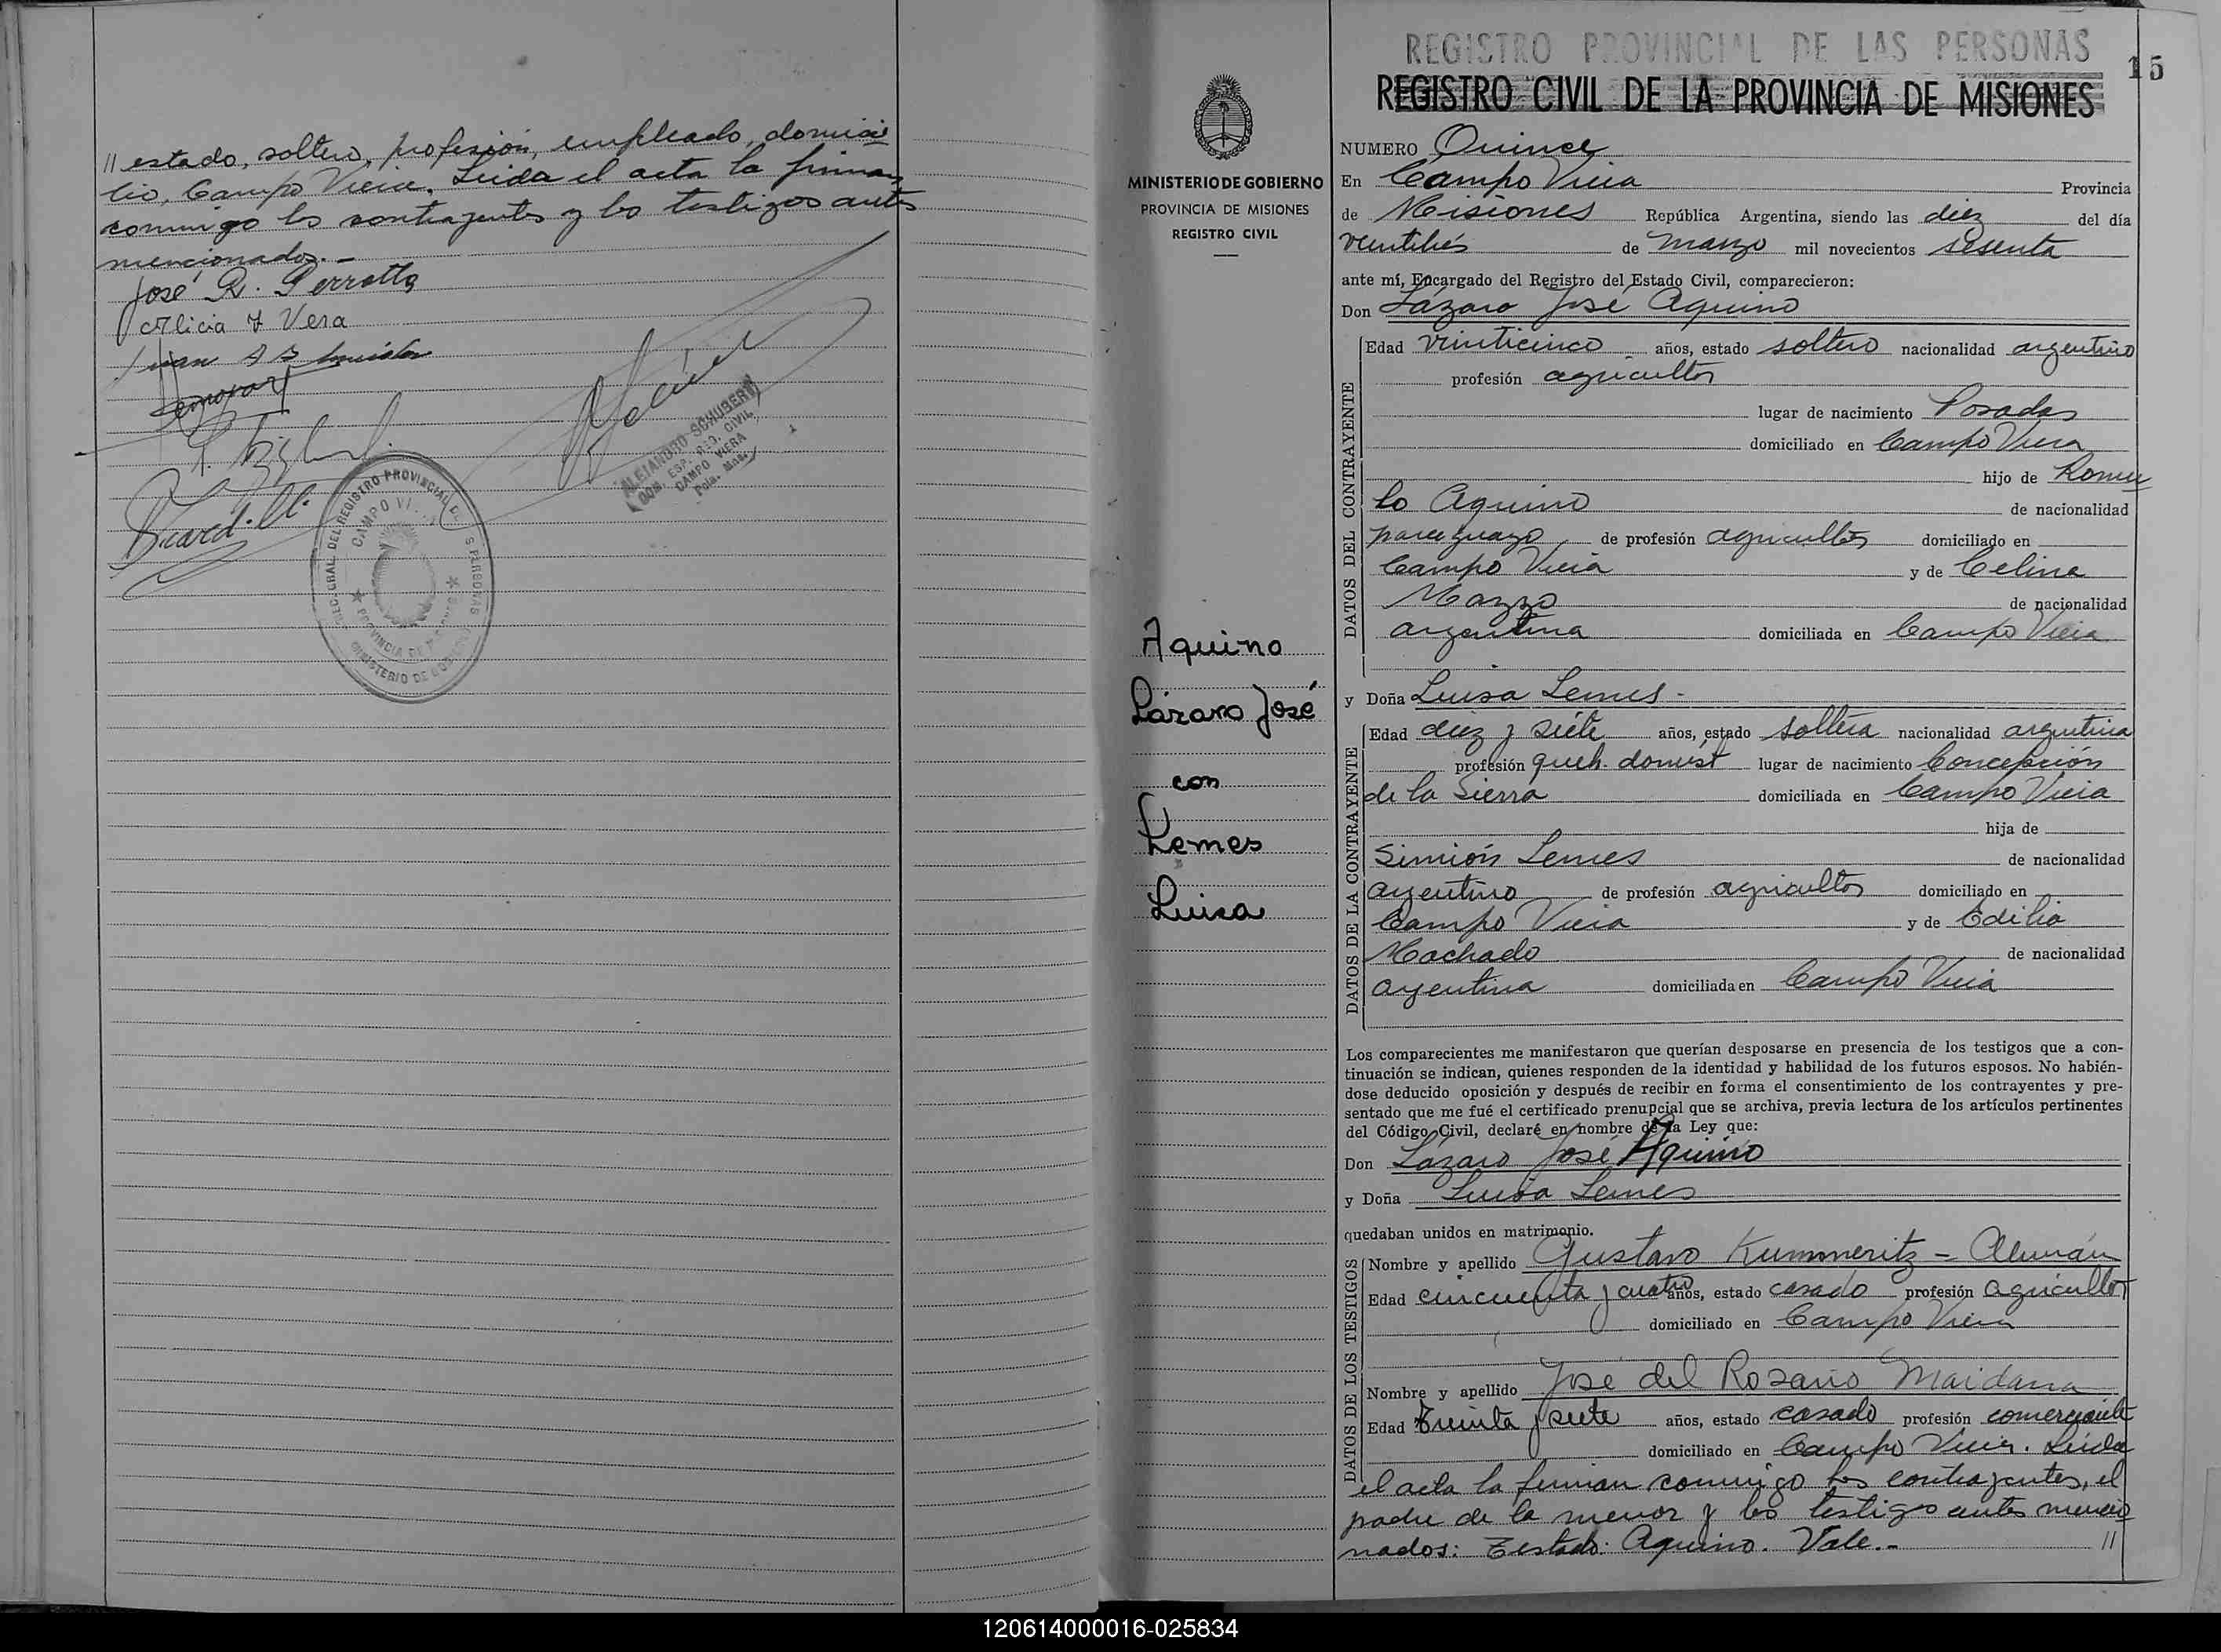 // estado, soltero, profesión, empleado, domici
lio, Campo Viera. Leida el acta la firman
conmigo los contrayentes y los testigos antes
mencionados.-
José R. Perrotta
Alicia Vera
Juan
ALEJANDRO SCHUBERT
REG. CIVIL
CAMPO VIERA
Pcia. Mnes.
DIREC. GRAL. DEL REGISTRO PROVINCIAL DE LAS PERSONAS
CAMPO VI
PROVINCIA DE MISIONES
MINISTERIO DE GOBIERNO
MINISTERIO DE GOBIERNO
PROVINCIA DE MISIONES
REGISTRO CIVIL
Aquino
Lázaro José
con
Lemes
Luisa
REGISTRO PROVINCIAL DE LAS PERSONAS
15
REGISTRO CIVIL DE LA PROVINCIA DE MISIONES
NUMERO Quince
En Campo Viera Provincia
de Misiones República Argentina, siendo las diez del día
veintitrés de marzo mil novecientos sesenta
ante mí, Encargado del Registro del Estado Civil, comparecieron:
Don Lázaro José Aquino
DATOS DEL CONTRAYENTE
Edad veinticinco años, estado soltero nacionalidad argentino
profesión agricultor
lugar de nacimiento Posadas
domiciliado en Campo Viera
hijo de Romu
lo Aquino de nacionalidad
paraguayo de profesión agricultor domiciliado en
Campo Viera y de Celina
Mazzo de nacionalidad
argentina domiciliada en Campo Viera
y Doña Luisa Lemes-
DATOS DE LA CONTRAYENTE
Edad diez y siete años, estado soltera nacionalidad argentina
profesión queh. domést lugar de nacimiento Concepción
de la Sierra domiciliada en Campo Viera
hija de
Simión Lemes de nacionalidad
argentino de profesión agricultor domiciliado en
Campo Viera y de Edilia
Machado de nacionalidad
argentina domiciliada en Campo Viera
Los comparecientes me manifestaron que querían desposarse en presencia de los testigos que a con-
tinuación se indican, quienes responden de la identidad y habilidad de los futuros esposos. No habién-
dose deducido oposición y después de recibir en forma el consentimiento de los contrayentes y pre-
sentado que me fué el certificado prenupcial que se archiva, previa lectura de los artículos pertinentes
del Código Civil, declaré en nombre de la Ley que:
Don Lázaro José Aquino
y Doña Luisa Lemes
quedaban unidos en matrimonio.
DATOS DE LOS TESTIGOS
Nombre y apellido Gustavo Kummeritz - Alemán
Edad cincuenta y cuatro años, estado casado profesión agricultor
domiciliado en Campo Viera
Nombre y apellido José del Rosario Maidana
Edad treinta y siete años, estado casado profesión comerciante
domiciliado en Campo Viera. Leida
el acta la firman conmigo los contrayentes, el
padre de la menor y los testigos antes mencio
nados: Testado: Aquino. Vale.- //
120614000016-025834